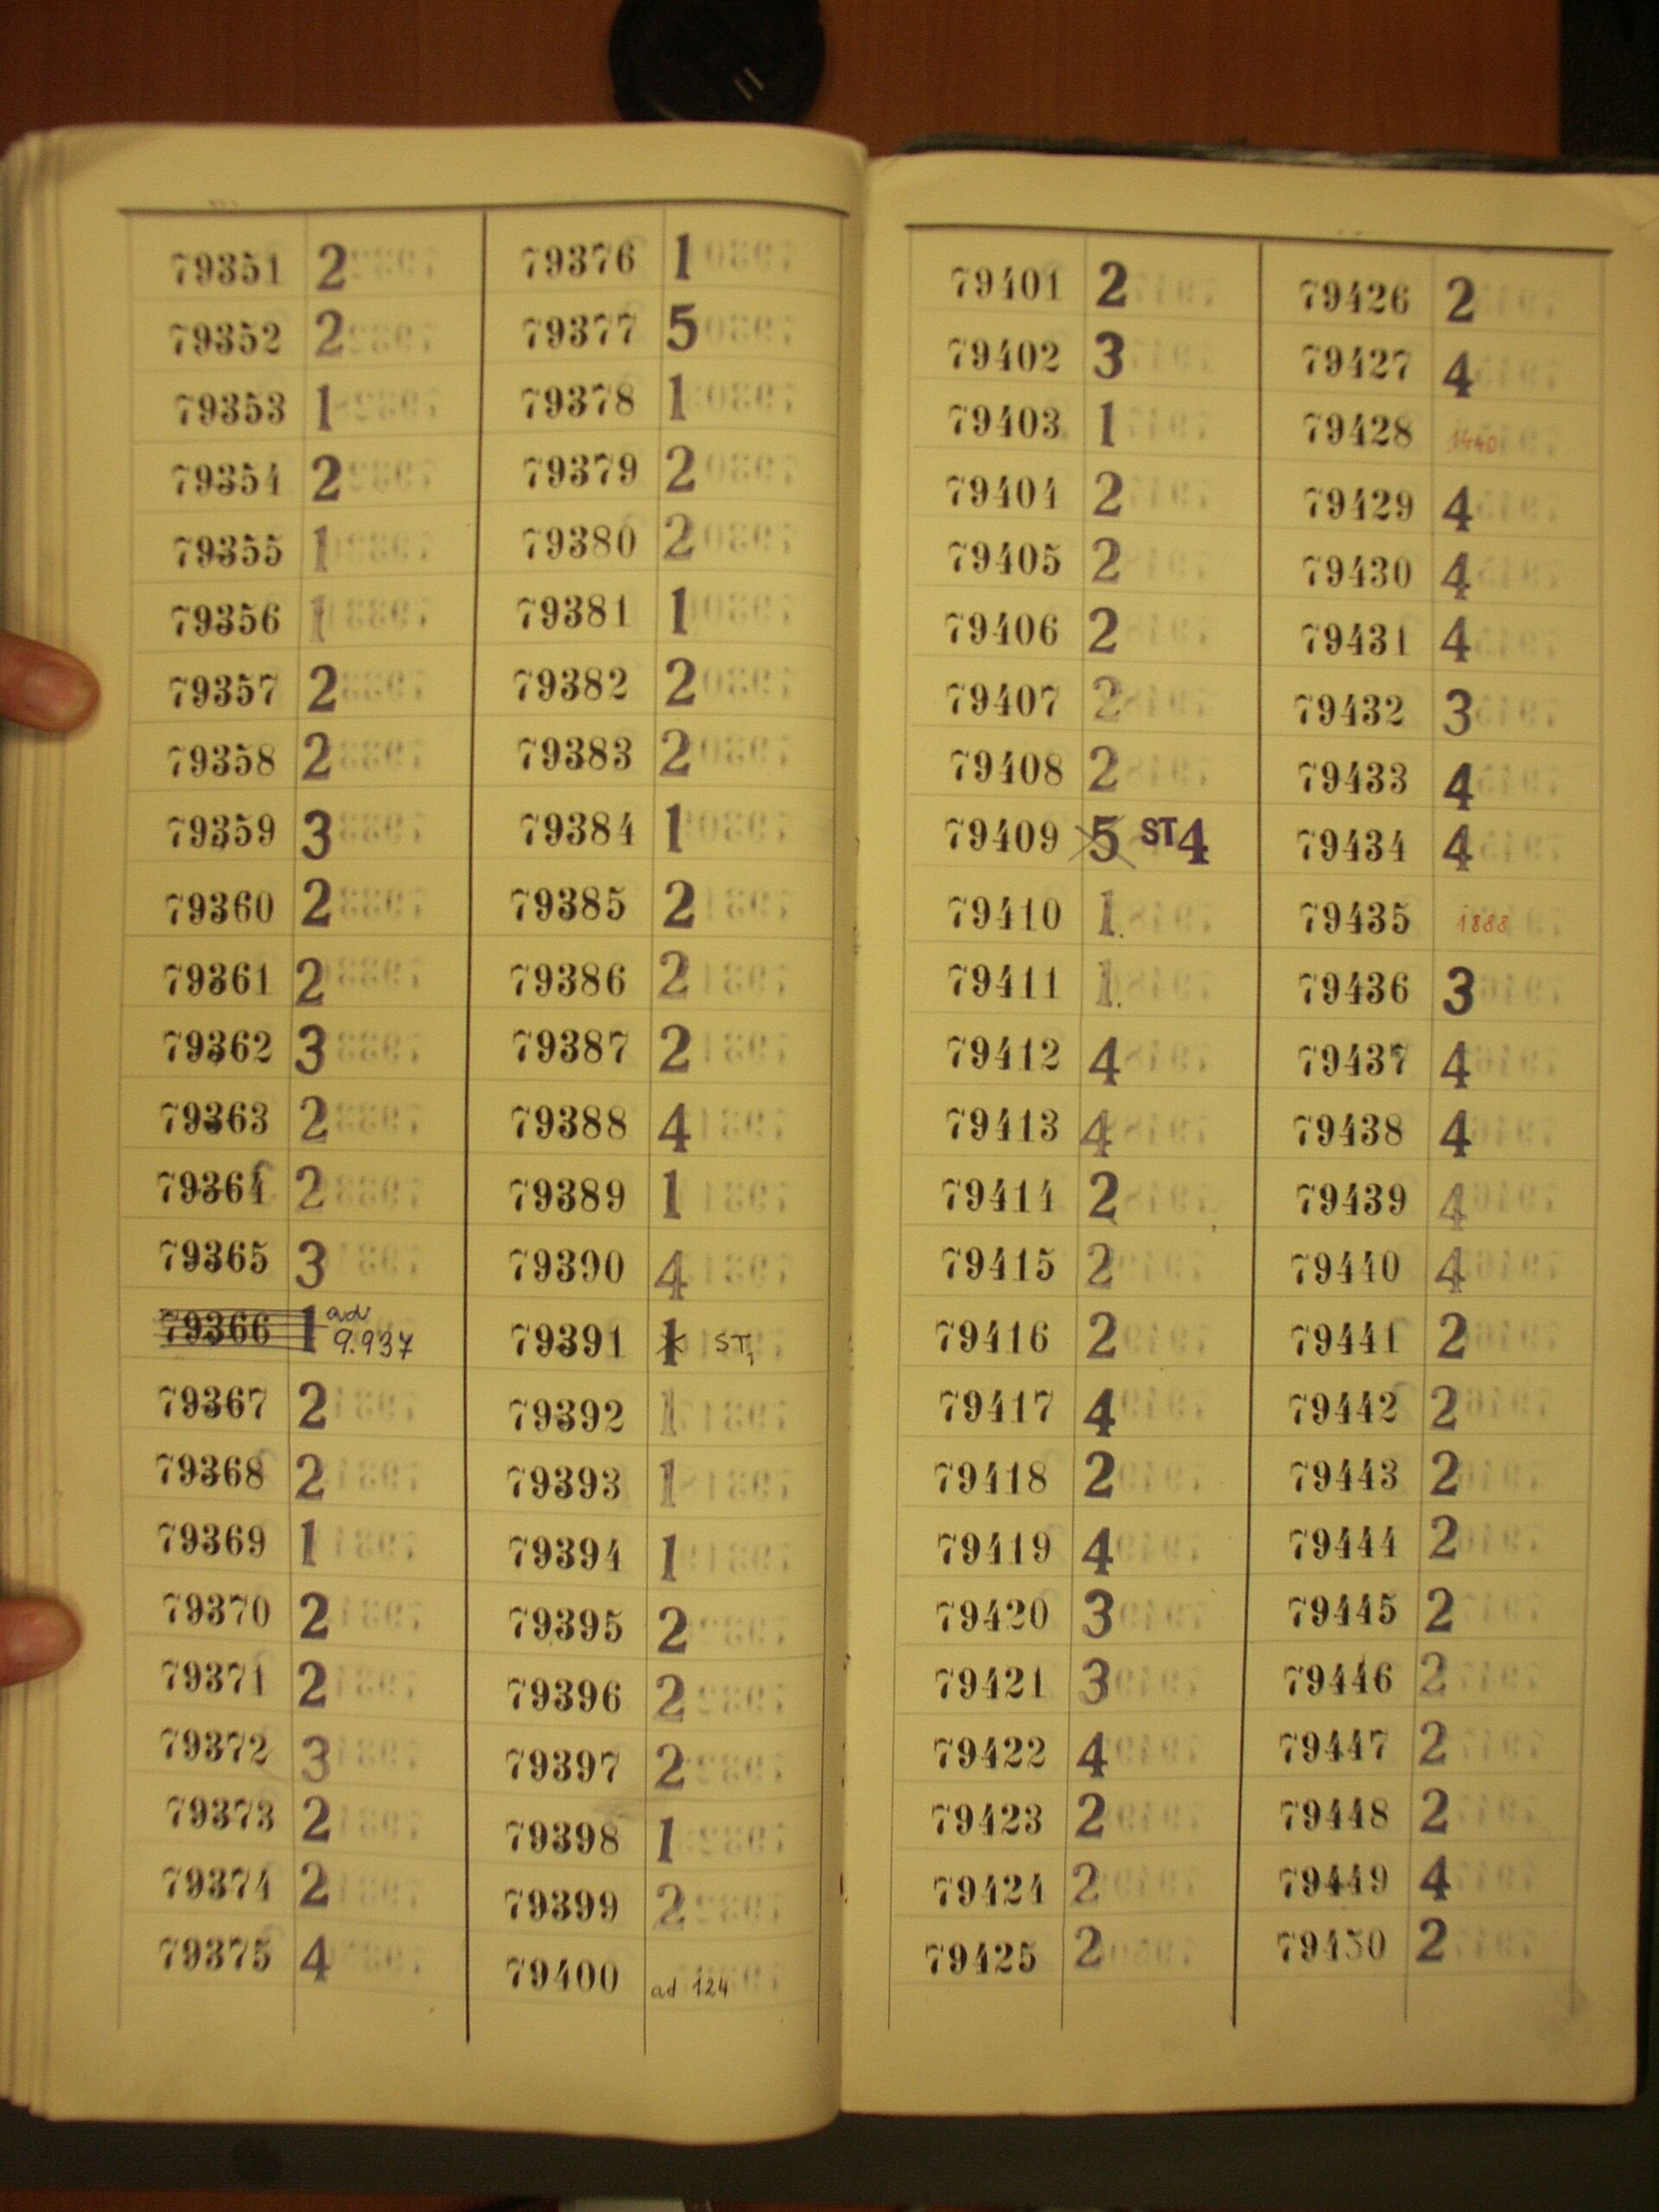 79351 2
79352 2
79353 1
79354 2
79355 1
79356 1
79357 2
79358 2
79359 3
79360 2
79361 2
79362 3
79363 2
79364 2
79365 3
79366 1 ad 9.937
79367 2
79368 2
79369 1
79370 2
79371 2
79372 3
79373 2
79374 2
79375 4
79376 1
79377 5
79378 1
79379 2
79380 2
79381 1
79382 2
79383 2
79384 1
79385 2
79386 2
79387 2
79388 4
79389 1
79390 4
79391 1 ST,
79392 1
79393 1
79394 1
79395 2
79396 2
79397 2
79398 1
79399 2
79400 ad 124
79401 2
79402 3
79403 1
79404 2
79405 2
79406 2
79407 2
79408 2
79409 5 ST4
79410 1.
79411 1.
79412 4
79413 4
79414 2
79415 2
79416 2
79417 4
79418 2
79419 4
79420 3
79421 3
79422 4
79423 2
79424 2
79425 2
79426 2
79427 4
79428 1440
79429 4
79430 4
79431 4
79432 3
79433 4
79434 4
79435 1888
79436 3
79437 4
79438 4
79439 4
79440 4
79441 2
79442 2
79443 2
79444 2
79445 2
79446 2
79447 2
79448 2
79449 4
79450 2